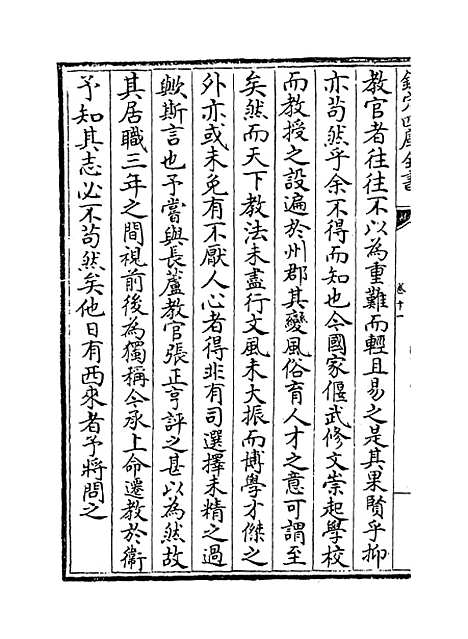 欽定四庫全書
卷十一
教官者往往不以為重難而輕且易之是其果賢乎抑
亦苟然乎余不得而知也今國家偃武修文崇起學校
而教授之設遍於州郡其變風俗育人才之意可謂至
矣然而天下教法未盡行文風未大振而博學才傑之
外亦或未免有不厭人心者得非有司選擇未精之過
歟斯言也予嘗與長蘆教官張正亨評之甚以為然故
其居職三年之間視前後為獨稱今承上命遷教於衛
予知其志必不苟然矣他日有西來者予將問之